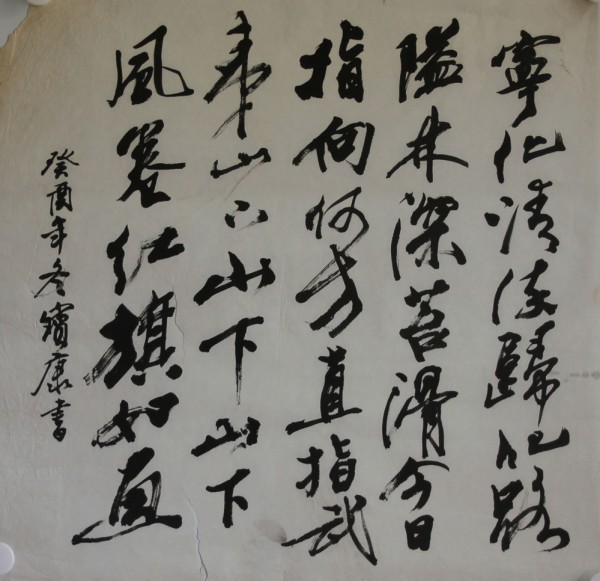 寧化清流歸化路
隘林深苔滑今日
指向何方直指武
夷山下山下山下
風卷红旗如画
癸酉年冬康書